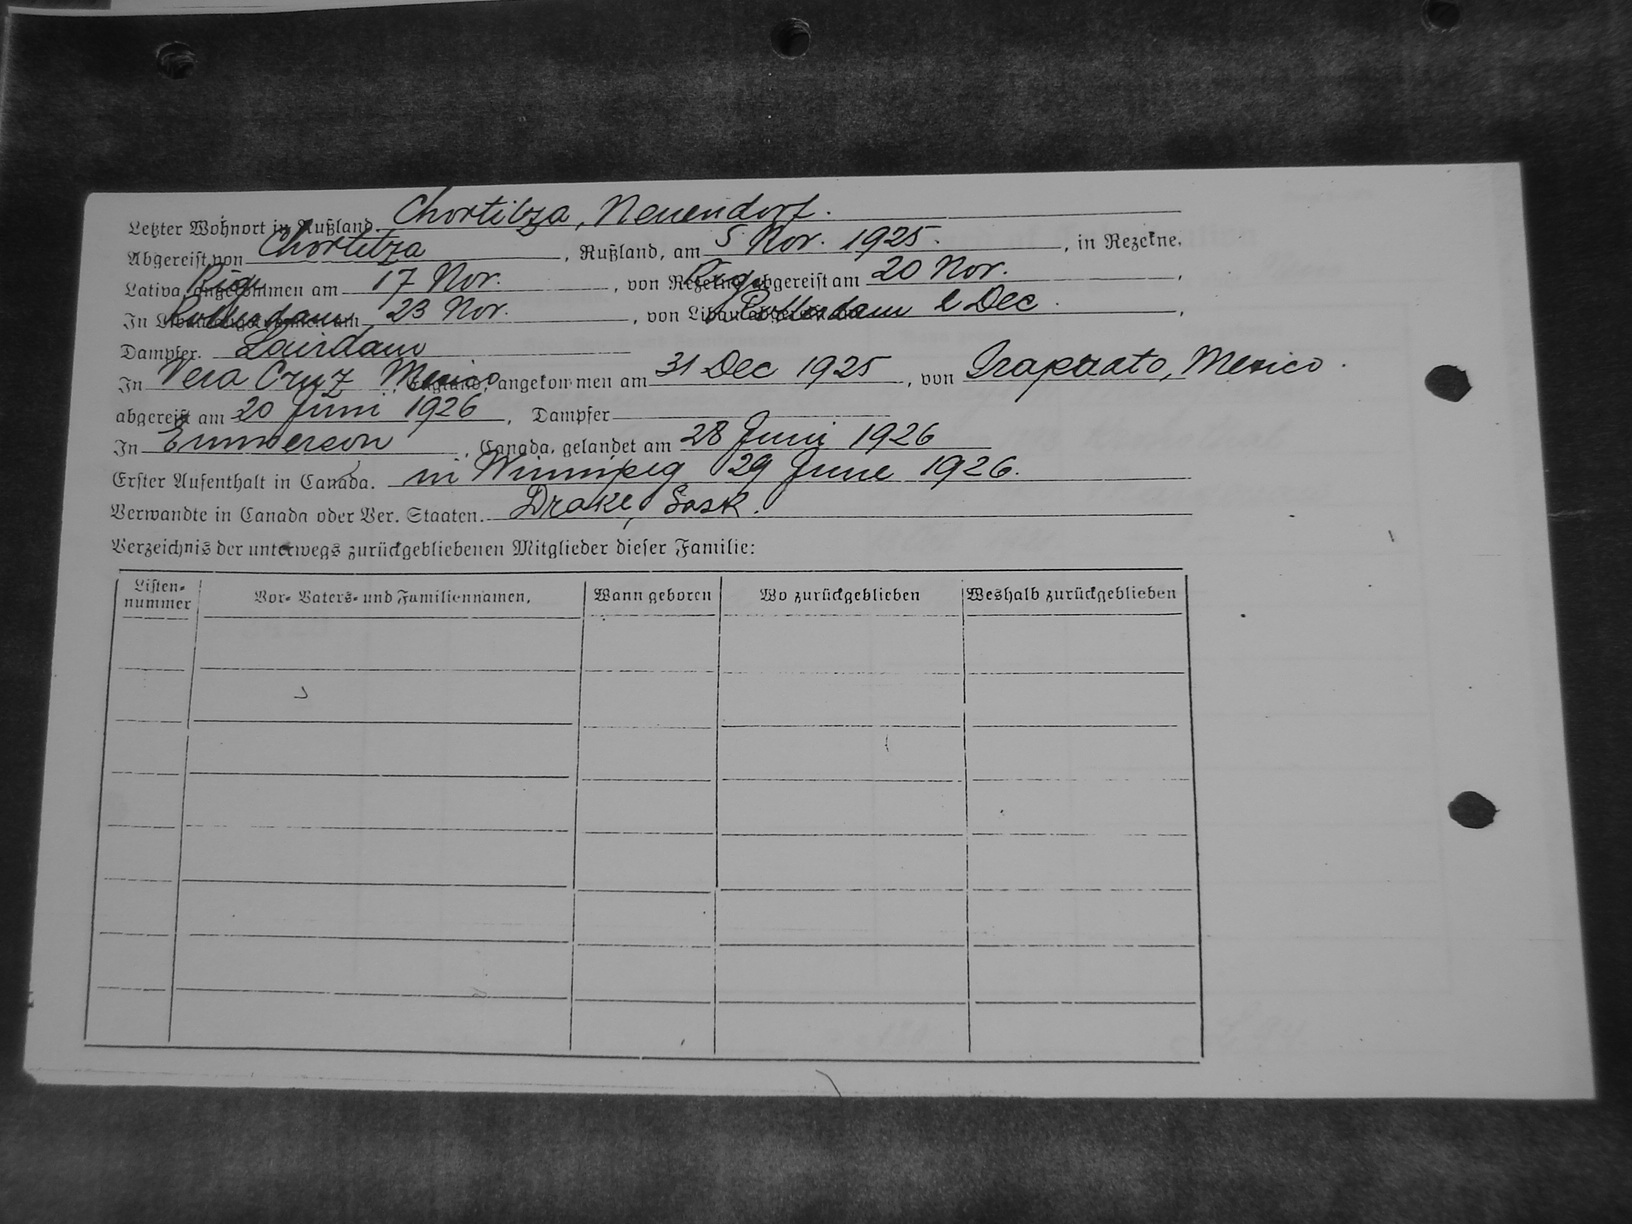 Letzter Wohnort in Rußland. Chortitza, Neuendorf.
Abgereist von Chortitza, Rußland, am 5 Nov. 1925., in Rezekne,
Lativa, Riga angekommen am 17 Nov., von Rezekne Riga abgereist am 20 Nov.,
In Libau Rotterdam angekommen am 23 Nov., von Libau Rotterdam 2 Dec.,
Dampfer.
In Vera Cruz Mexico England, angekommen am 31 Dec 1925, von Irapuato, Mexico.
abgereist am 20 Juni 1926, Dampfer
In Emmerson, Canada, gelandet am 28 Juni 1926
Erster Aufenthalt in Canada. in Winnipeg 29 June 1926.
Verwandte in Canada oder Ver. Staaten. Drake, Sask.
Verzeichnis der unterwegs zurückgebliebenen Mitglieder dieser Familie:
Listen- nummer Vor- Vaters- und Familiennamen, Wann geboren Wo zurückgeblieben Weshalb zurückgeblieben